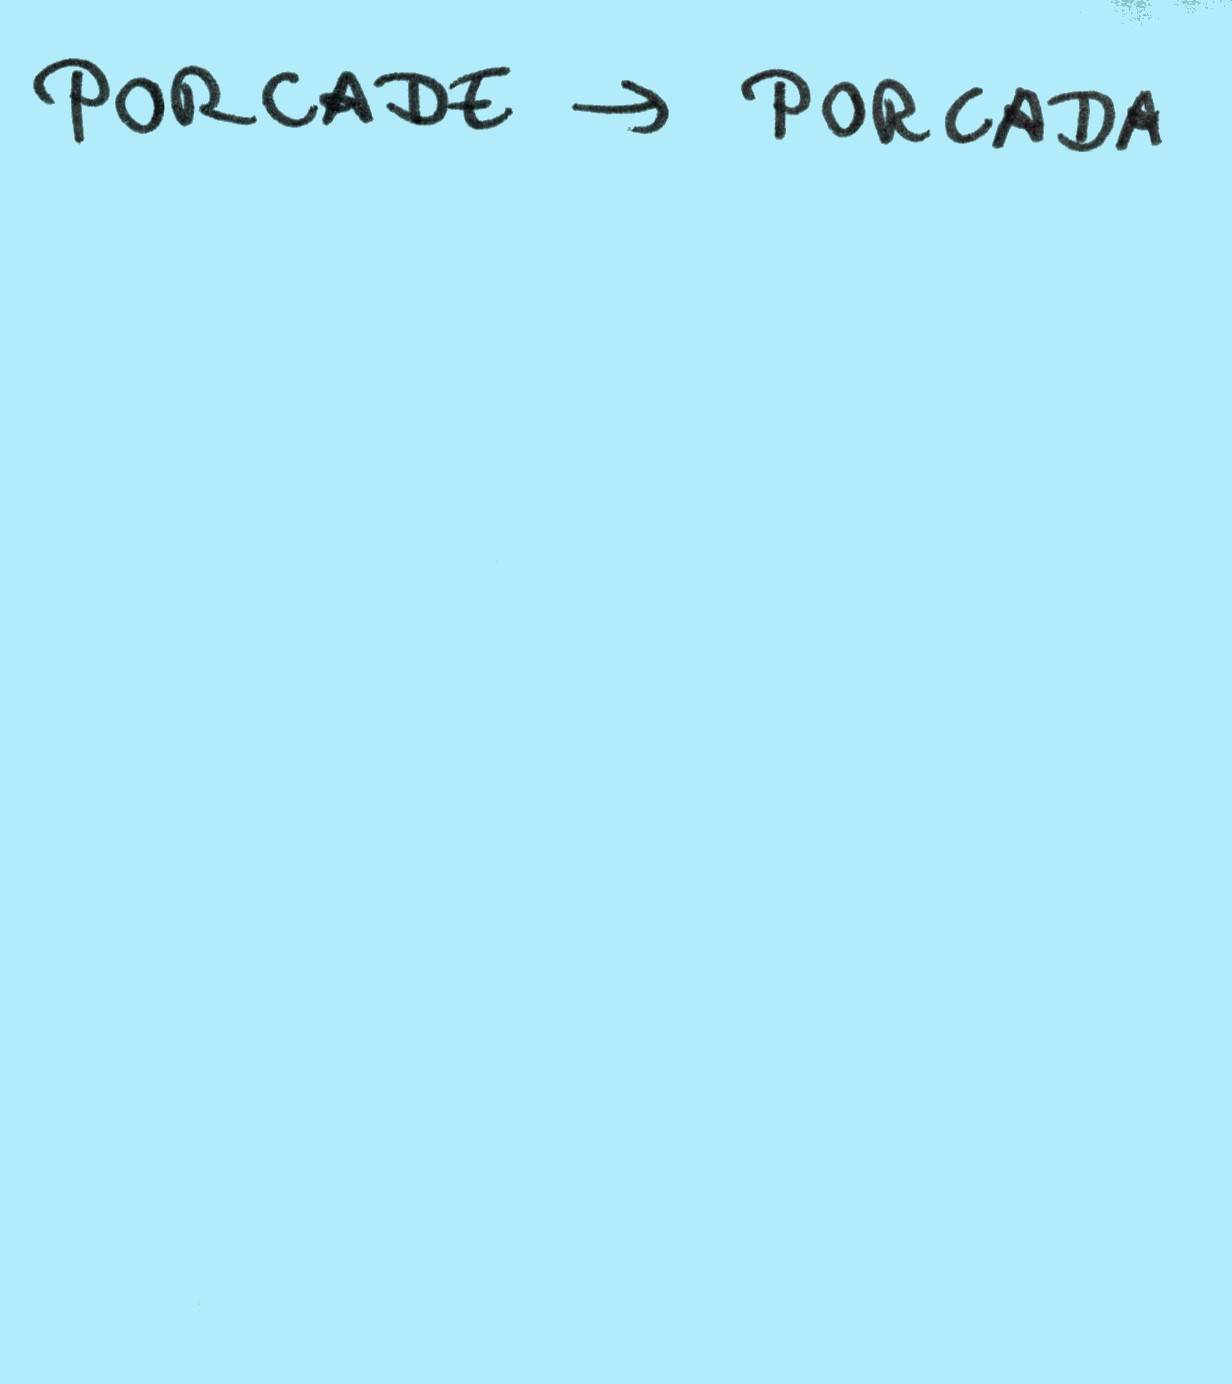 PORCADE → PORCADA